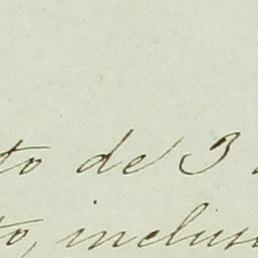 to de 3
to, inclus